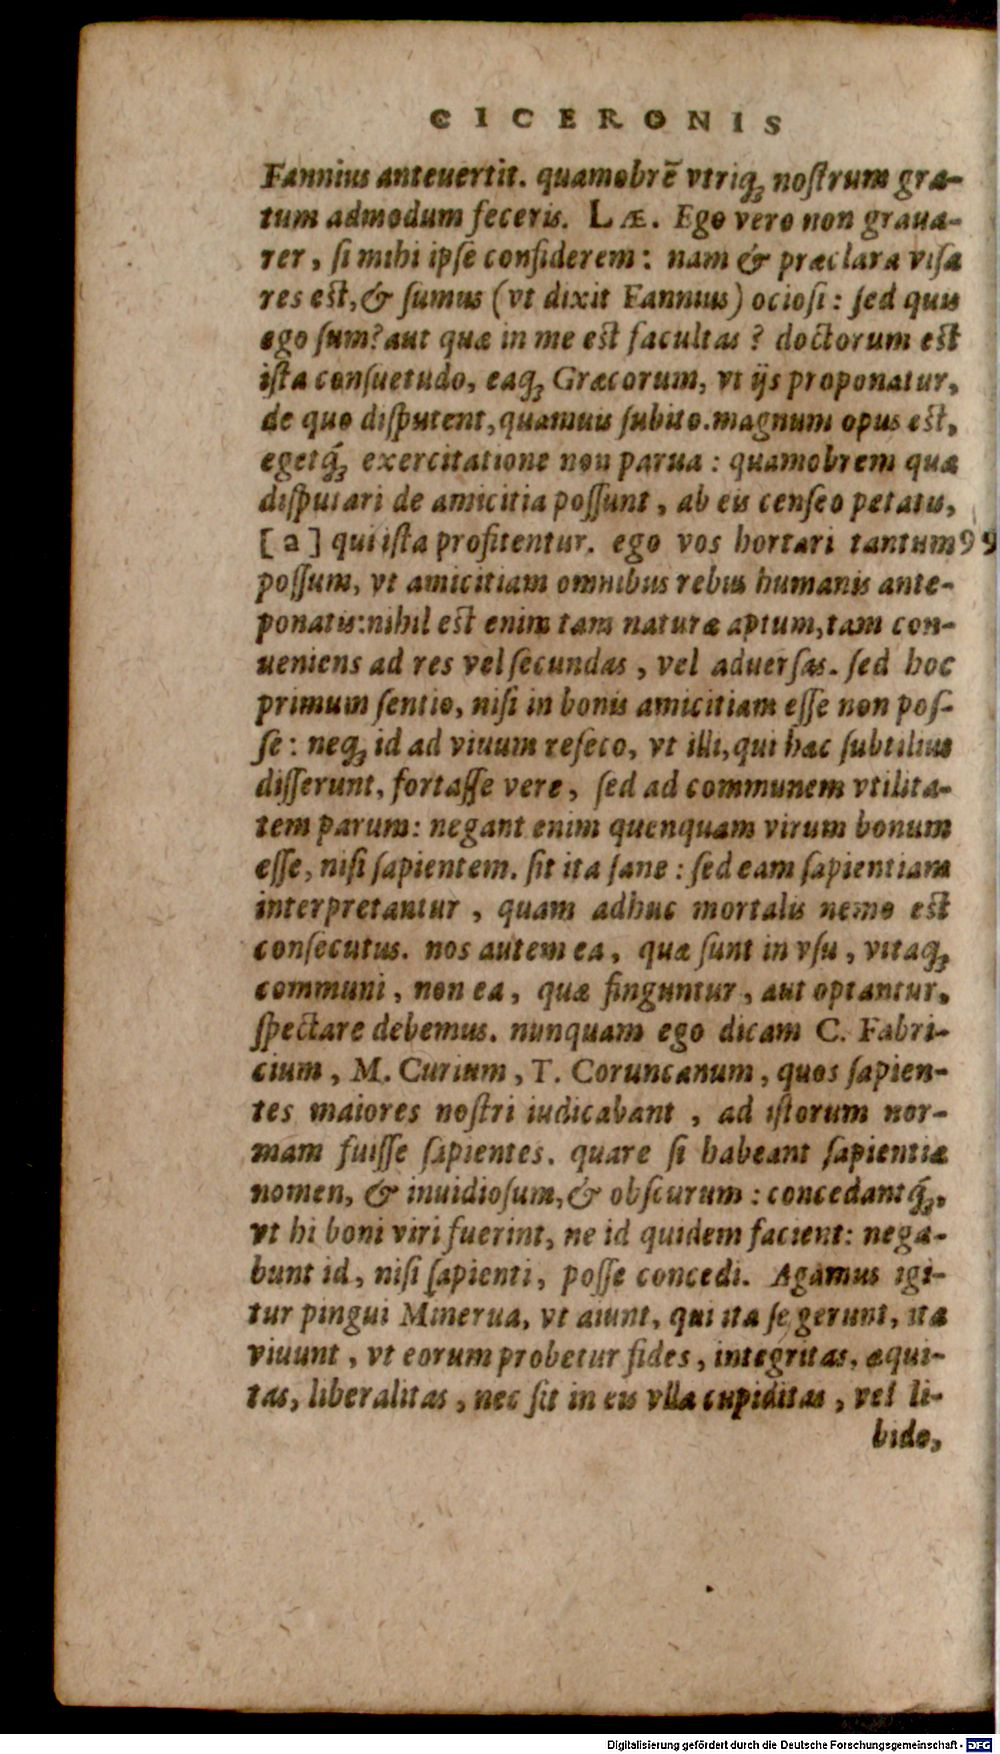 CICERONIS
Fannius anteuertit. quamobrẽ vtriq́; nostrum gra-
tum admodum feceris. LÆ. Ego vero non graua-
rer, si mihi ipse confiderem: nam & præclara visa
res est, & sumus (vt dixit Fannius) ociosi: sed quis
ego sum? aut quæ in me est facultas? doctorum est
ista consuetudo, eaq; Græcorum, vt ijs proponatur,
de quo disputent, quamuis subito. magnum opus est,
egetq́; exercitatione non parua: quamobrem quæ
disputari de amicitia possunt, ab eis censeo petatis,
[a] qui ista profitentur. ego vos hortari tantum 99
possum, vt amicitiam omnibus rebus humanis ante-
ponatis: nihil est enim tam naturæ aptum, tam con-
ueniens ad res vel secundas, vel aduersas. sed hoc
primum sentio, nisi in bonis amicitiam esse non pos-
se: neq; id ad viuum reseco, vt illi, qui hæc subtilius
disserunt, fortasse vere, sed ad communem vtilita-
tem parum: negant enim quenquam virum bonum
esse, nisi sapientem. sit ita sane: sed eam sapientiam
interpretantur, quam adhuc mortalis nemo est
consecutus. nos autem ea, quæ sunt in vsu, vitaq;
communi, non ea, quæ finguntur, aut optantur,
spectare debemus. nunquam ego dicam C. Fabri-
cium, M. Curium, T. Coruncanum, quos sapien-
tes maiores nostri iudicabant, ad istorum nor-
mam fuisse sapientes. quare si habeant sapientiæ
nomen, & inuidiosum, & obscurum: concedantq́;,
vt hi boni viri fuerint, ne id quidem facient: nega-
bunt id, nisi sapienti, posse concedi. Agamus igi-
tur pingui Minerua, vt aiunt, qui ita se gerunt, ita
viuunt, vt eorum probetur fides, integritas, æqui-
tas, liberalitas, nec sit in eis vlla cupiditas, vel li-
bido,
Digitalisierung gefördert durch die Deutsche Forschungsgemeinschaft - DFG